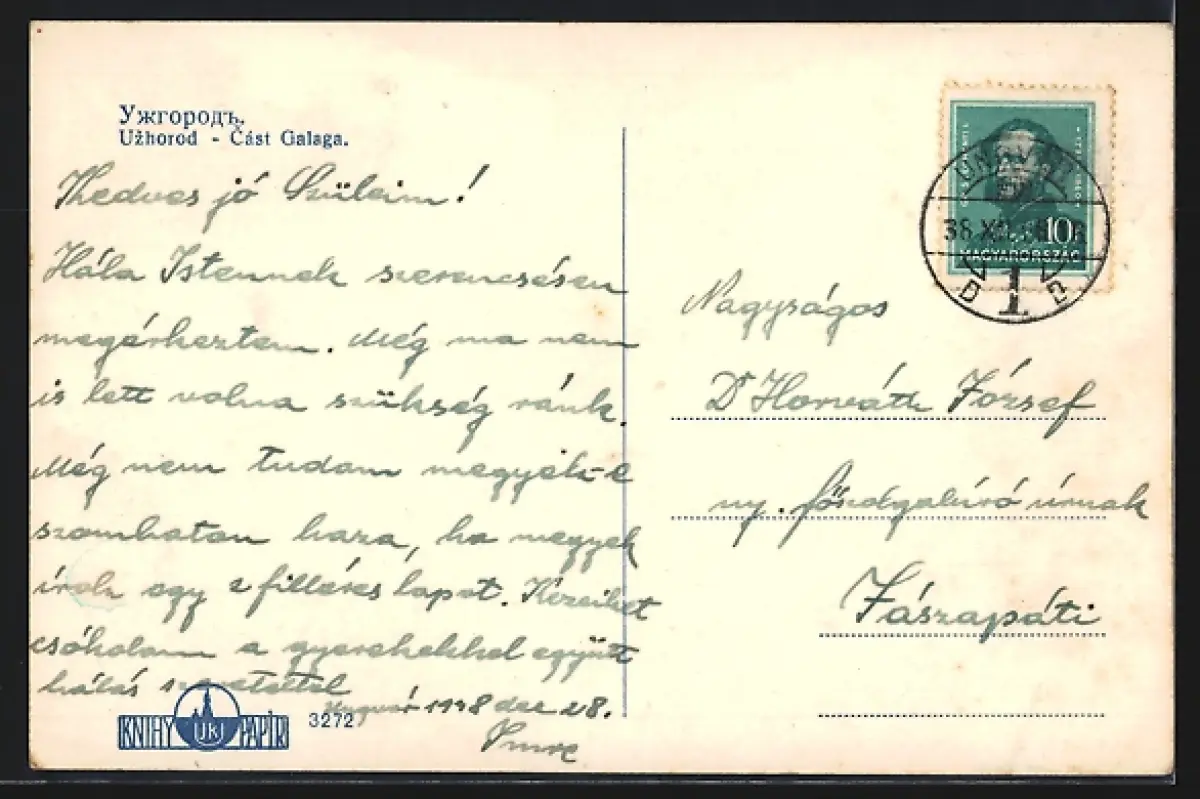 Ужгородъ.
Užhorod - Část Galaga.
Kedves jó Szüleim!
Hála Istennek szerencsésen
megérkeztem. Még ma nem
is lett volna szükség ránk.
Még nem tudom megyek-e
szombaton haza, ha megyek
írok egy 2 filléres lapot. Kezeiket
csókolom a gyerekekkel együtt
hálás szeretettel
Ungvár 1938 dec 28.
Imre
KNIHY UKJ PAPÍR
3272
10
MAGYARORSZÁG
UNGVÁR
38 XII.
1
D D
Nagyságos
Dr Horváth József
ny. főszolgabíró úrnak
Jászapáti